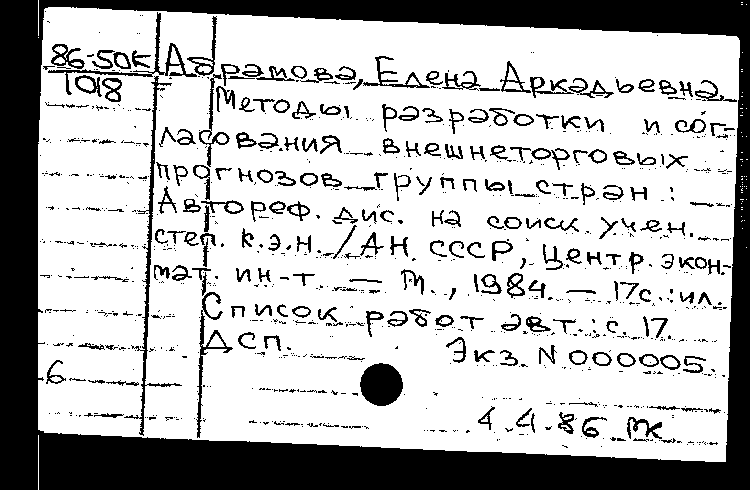 86-50K Абрамова, Елена Аркадьевна.
1018 Методы разработки и сог-
ласования внешнеторговых
прогнозов группы стран :
Автореф. дис. на соиск. учен.
степ. к.э.н. / АН СССР, Центр. экон.-
мат. ин-т. — М., 1984. — 17с.: ил.
Список работ авт.: с. 17.
ДСП. Экз. N 000005.
6
4.4.86 мк